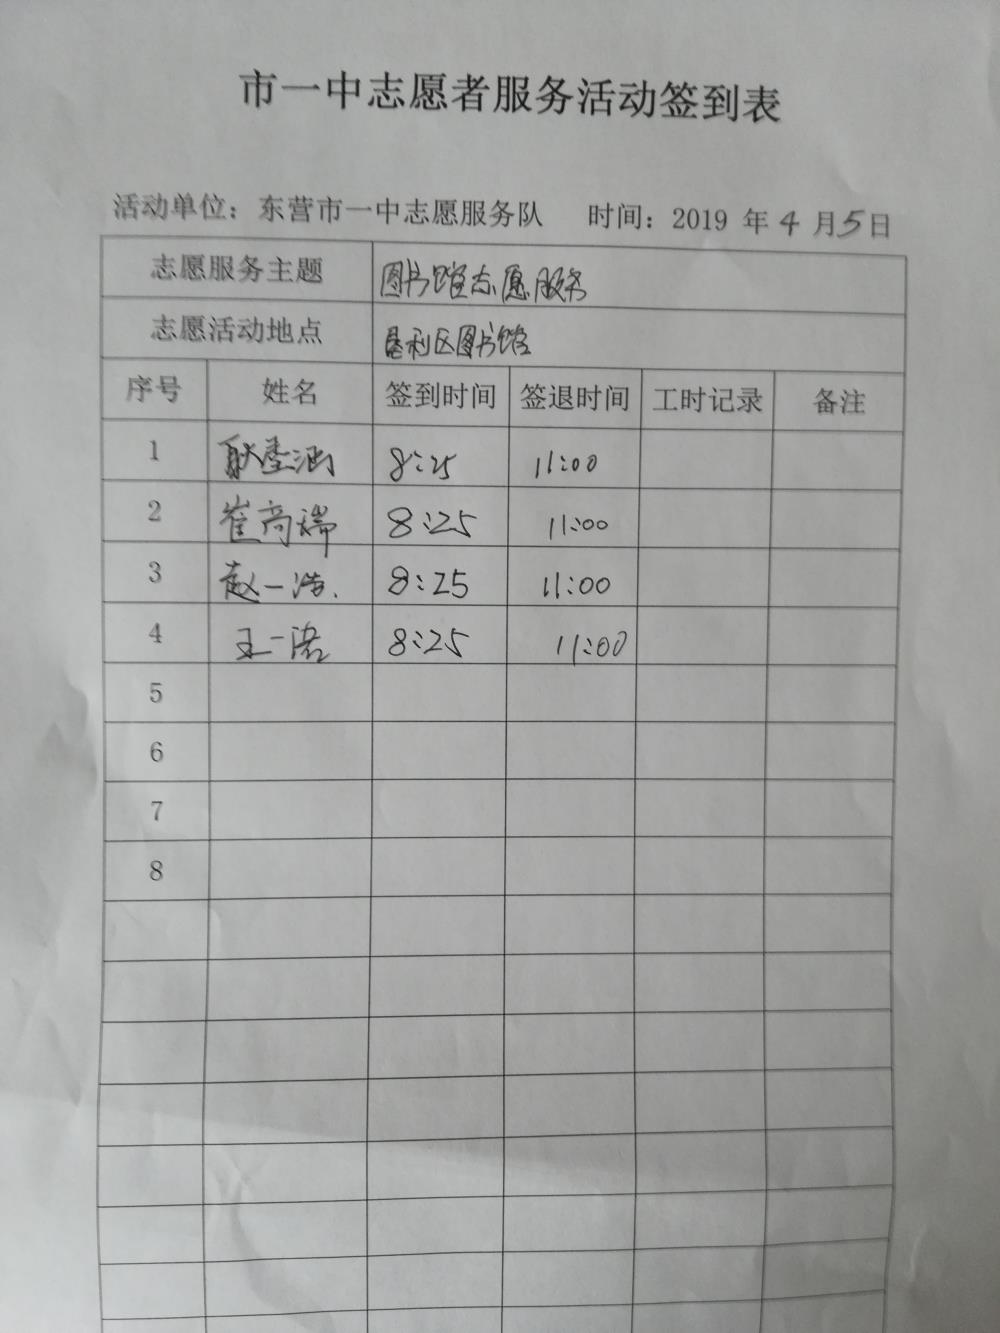 市一中志愿者服务活动签到表
活动单位：东营市一中志愿服务队 时间：2019 年 4 月 5 日
志愿服务主题 图书馆志愿服务
志愿活动地点 垦利区图书馆
序号 姓名 签到时间 签退时间 工时记录 备注
1 耿 涵 8:25 11:00
2 崔尚瑞 8:25 11:00
3 赵一浩. 8:25 11:00
4 王一诺 8:25 11:00
5
6
7
8